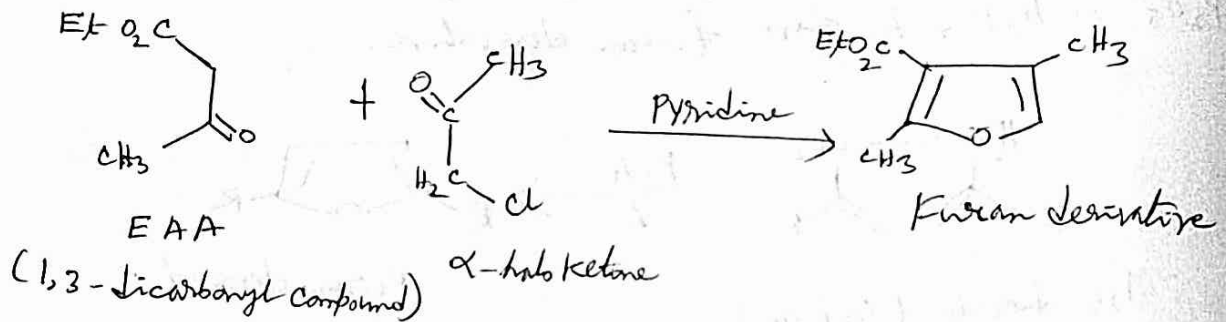 EtO₂C
CH3
O
EAA
(1,3-dicarbonyl compound)
+
O
C
CH3
H₂C
Cl
α-halo ketone
Pyridine
EtO₂C
CH3
CH3
O
Furan derivative